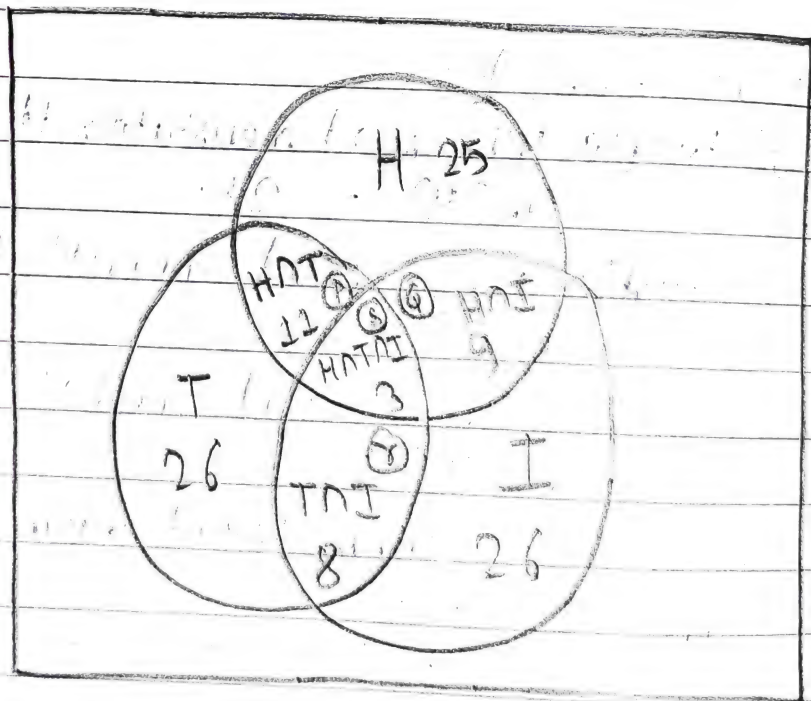 H 25
H∩T
11
P
S
Q
H∩I
9
H∩T∩I
3
T
26
r
T∩I
8
I
26